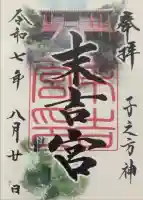 奉拝
子之方神
末吉宮
令和七年
八月廿日